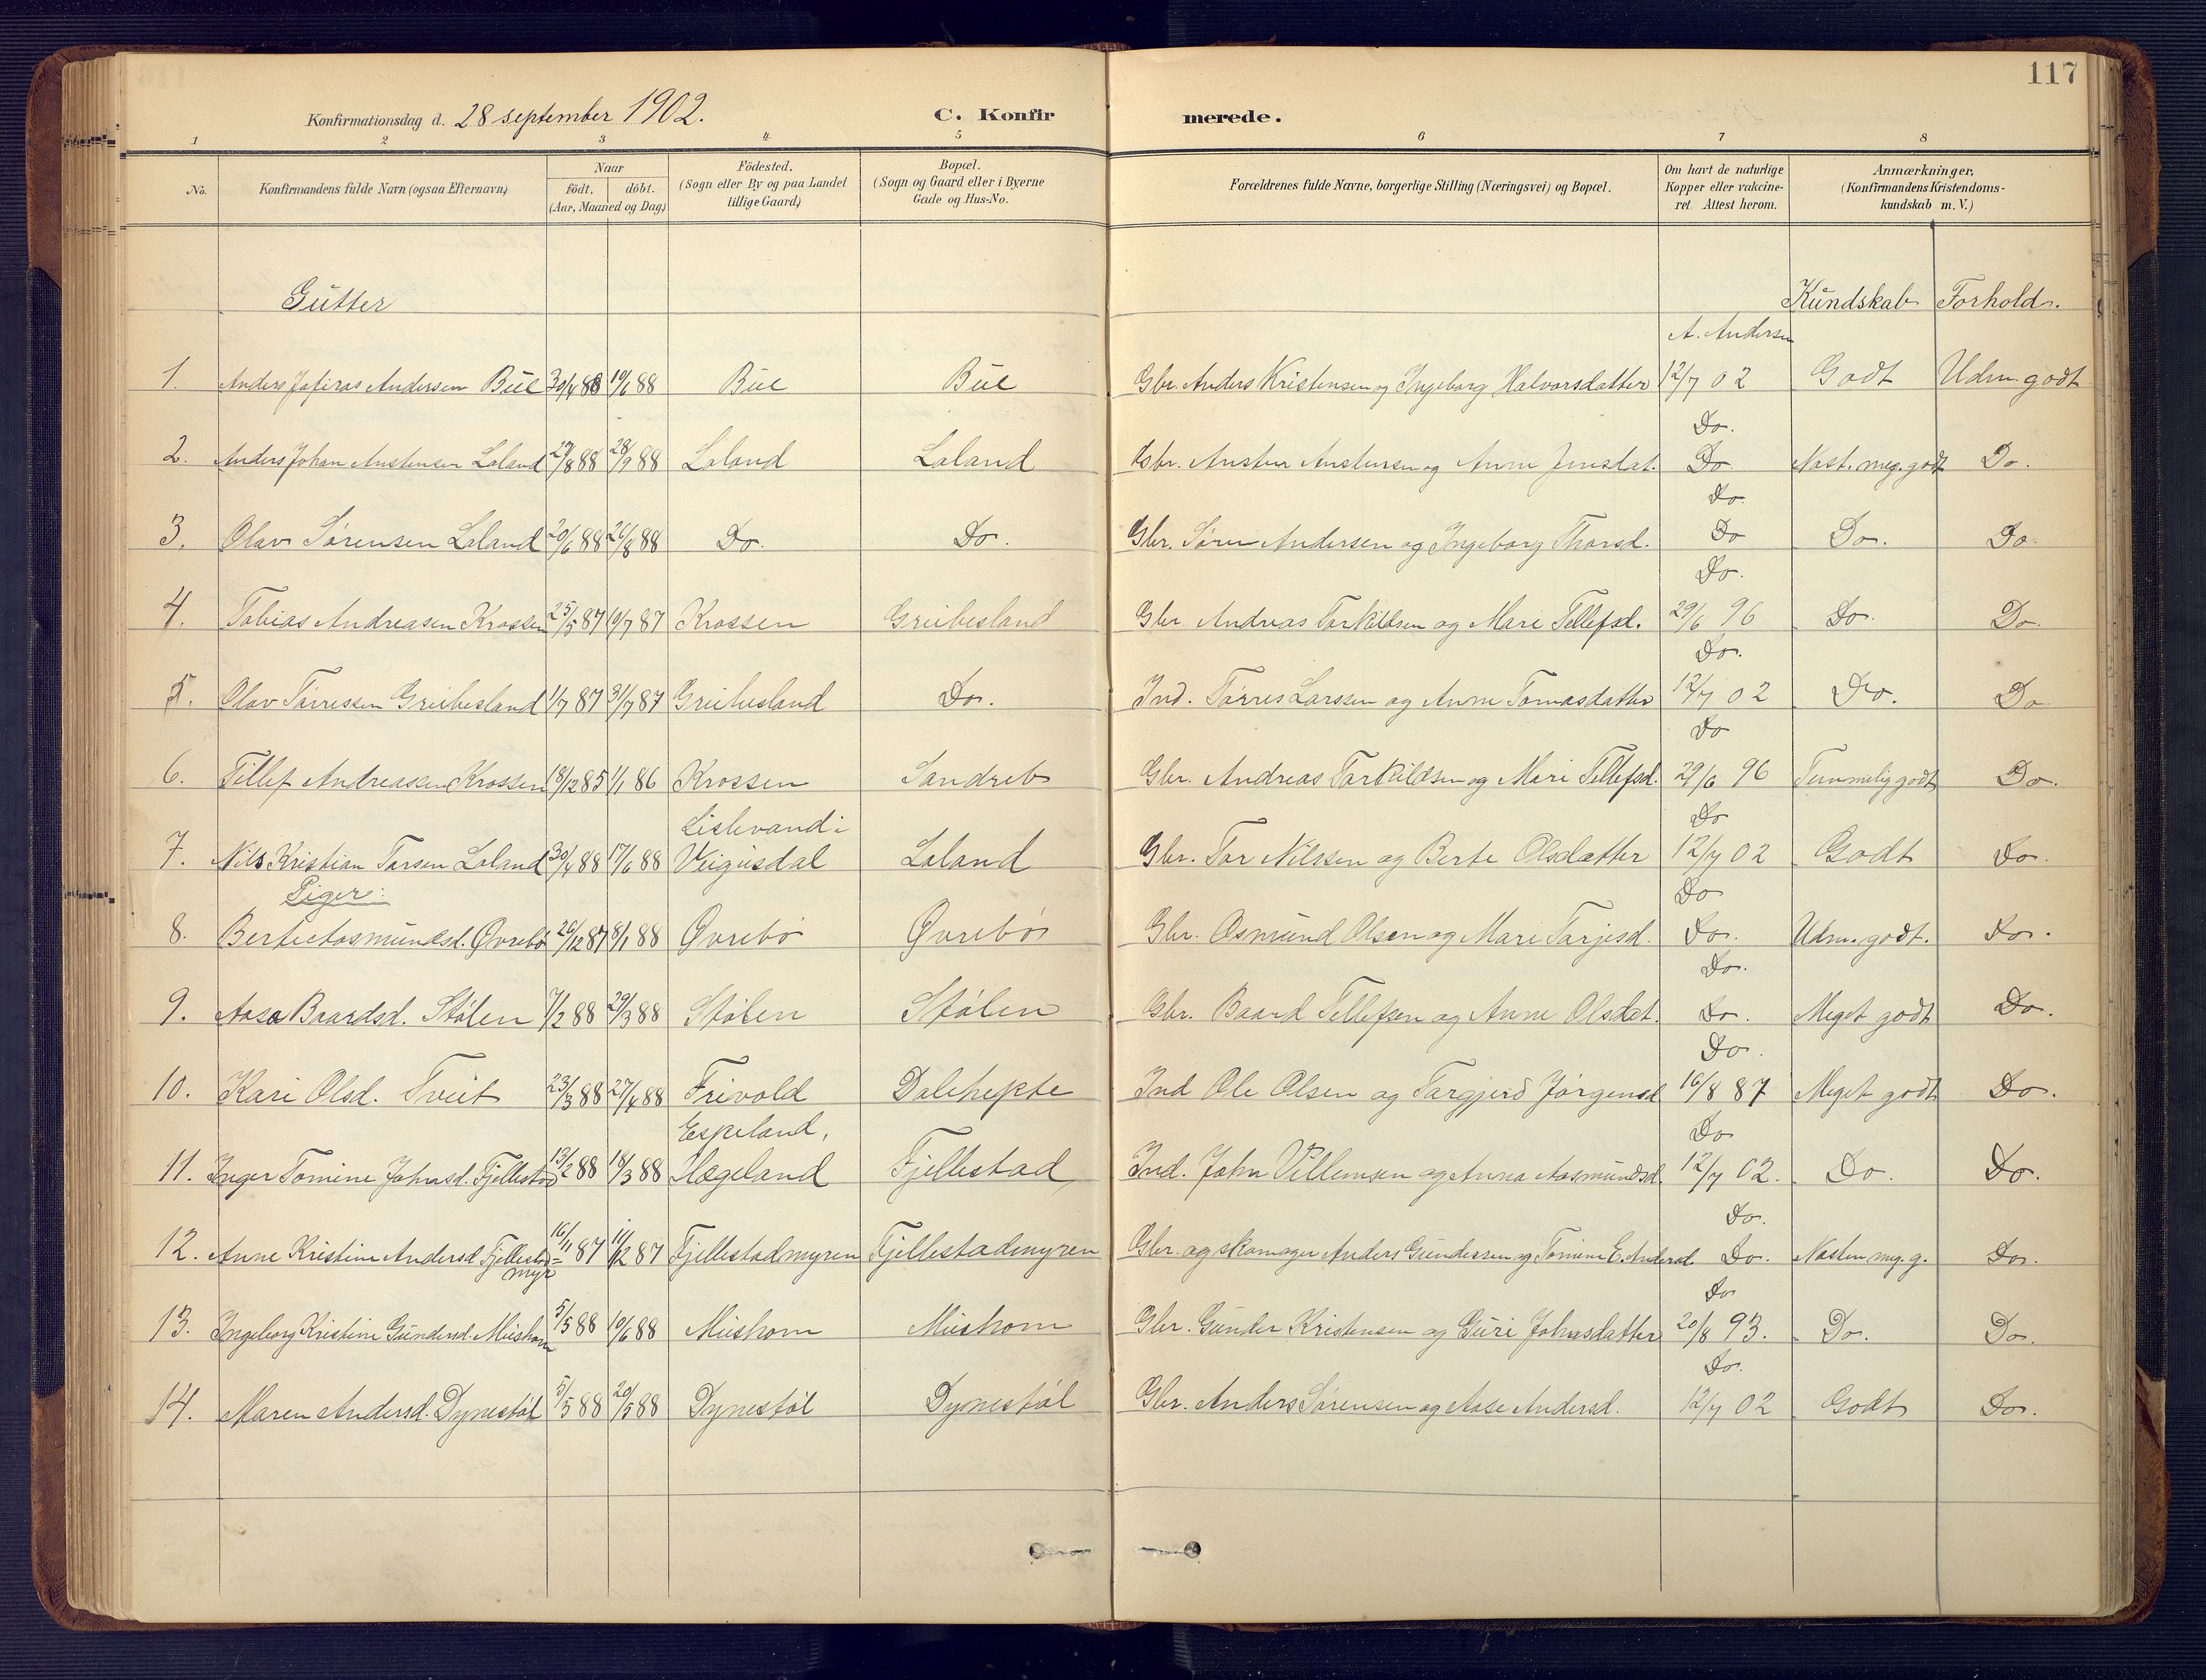 117
Konfirmationsdag d. 28 september 1902. C. Konfirmerede.
1 2 3 4 5 6 7 8
No. Konfirmandens fulde Navn (ogsaa Efternavn) Naar født. døbt. (Aar, Maaned og Dag) Födested. (Sogn eller By og paa Landet tillige Gaard) Bopæl. (Sogn og Gaard eller i Byerne Gade og Hus-No. Forældrenes fulde Navne, borgerlige Stilling (Næringsvei) og Bopæl. Om havt de naturlige Kopper eller vakcineret. Attest herom. Anmærkninger, (Konfirmandens Kristendomskundskab m. V.)
Gutter Kundskab Forhold.
A. Andersen
1. Anders Andersen Bue 30/4 88 10/6 88 Bue Bue Gbr. Anders Kristensen og Ingeborg Halvorsdatter 12/7 02 Godt Udm. godt
Do.
2. Anders Johan Austensen Loland 29/8 88 28/9 88 Loland Loland Gbr. Austen Austensen og Anne Jensdat. Do. Næst. meg. godt Do.
Do.
3. Olav Sørensen Loland 20/6 88 26/8 88 Do. Do. Gbr. Søren Andersen og Ingeborg Thorsd. Do Do. Do.
Do.
4. Tobias Andreasen Krossen 25/5 87 10/7 87 Krossen Greibesland Gbr Andreas Torkildsen og Mari Tellefsd. 29/6 96 Do. Do.
Do.
5. Olav Tørressen Greibesland 1/7 87 31/7 87 Greibesland Do. Ind. Tørres Larssen og Anne Tomasdatter 12/7 02 Do. Do
Do
6. Tellef Andreassen Krossen 18/12 85 1/1 86 Krossen Sandreb Gbr. Andreas Torkildsen og Mari Tellefsd. 29/6 96 Temmelig godt Do.
Do
7. Nils Kristian Torsen Loland 30/4 88 17/6 88 Lislevand i Veigusdal Loland Gbr. Tor Nilssen og Berte Olsdatter 12/7 02 Godt Do.
Piger: Do
8. Berte Aasmundsd. Øvrebø 26/12 87 8/1 88 Øvrebø Øvrebø Gbr. Osmund Olsen og Mari Tarjesd. Do. Udm. godt. Do.
Do.
9. Aasa Baardsd. Stølen 7/2 88 29/3 88 Stølen Stølen Gbr. Baard Tellefsen og Anne Olsdat. Do. Meget godt Do.
Do.
10. Kari Olsd. Tveit 23/3 88 27/4 88 Frivold Dalehefte Ind Ole Olsen og Targjerd Jørgensd 16/8 87 Meget godt Do.
Do
11. Inger Tomine Johnsd. Fjellestad 13/2 88 18/3 88 Espeland, Hægeland Fjellestad Ind. John Villemsen og Anna Aasmundsd. 12/7 02. Do. Do.
Do.
12. Anne Kristine Andersd Fjellestad=myr 16/11 87 11/12 87 Fjellestadmyren Fjellestadmyren Gbr. og skomager Anders Gundersen og Tomine E. Andersd. Do. Næsten meg. g. Do.
Do
13. Ingeborg Kristine Gundersd. Mushom 5/5 88 10/6 88 Mushom Mushom Gbr. Gunder Kristensen og Guri Johnsdatter 20/8 93. Do. Do.
Do.
14. Maren Andersd. Dynestøl 5/5 88 20/5 88 Dynestøl Dynestøl Gbr. Anders Sørensen og Aase Andersd. 12/7 02 Godt Do.